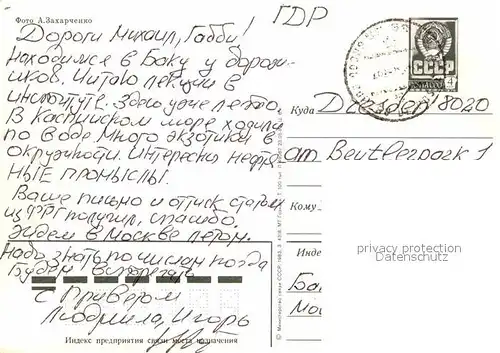 Фото А.Захарченко
ГДР
Дороги Михаил, Габби!
находимся в Баку у
Читаю лекции в
институте. Здесь уже лето.
В Каспийском море ходили
по воде. Много экзотики в
окружности. Интересны нефтя-
ные промыслы.
Ваше письмо и оттиск статьи
из ФРГ получил, спасибо.
Ждем в Москве летом.
Надо знать по числам когда
будем
С приветом
Людмила, Игорь
Индекс предприятия связи места назначения
СССР
ПОЧТА
4
Куда Dresden 8020
am Beutlerpark 1
Кому
Инде
Ба
Мо
privacy protection
Datenschutz
© Министерство связи СССР. 1983.